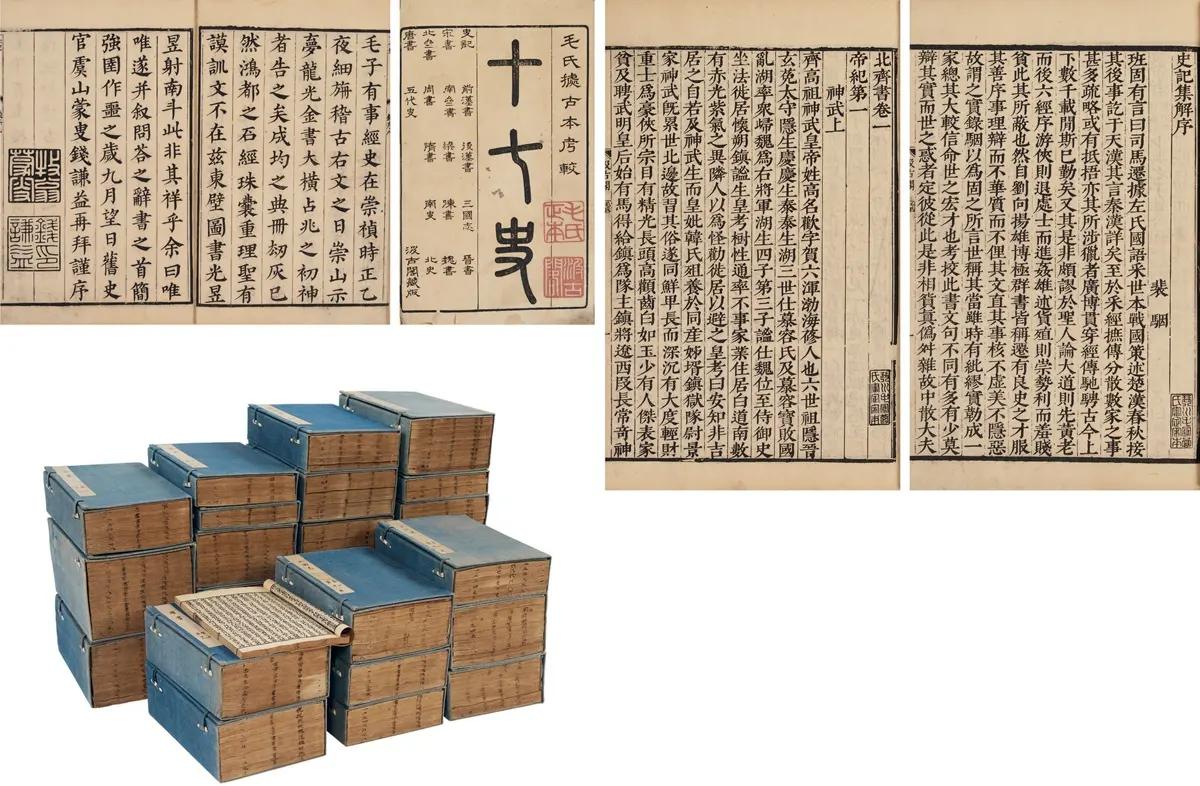 毛子有事經史在崇禎時正乙
夜細旃稽古右文之日崇山示
夢龍光金書大橫占兆之初神
者告之矣成均之典冊刼灰已
然鴻都之石經珠囊重理聖有
謨訓文不在兹東壁圖書光昱
昱射南斗此非其祥乎余曰唯
唯遂并叙問荅之辭書之首簡
強圉作噩之歲九月望日舊史
官虞山蒙叟錢謙益再拜謹序
毛氏據古本考較
十七史
史記 前漢書 後漢書 三國志 晉書
宋書 南齊書 梁書 陳書 魏書
北齊書 周書 隋書 南史 北史
唐書 五代史 汲古閣藏版
北齊書卷一
帝紀第一
神武上
齊高祖神武皇帝姓高名歡字賀六渾渤海蓚人也六世祖隱晉
玄菟太守隱生慶慶生泰泰生湖三世仕慕容氏及慕容寶敗國
亂湖率衆歸魏爲右將軍湖生四子第三子謐仕魏位至侍御史
坐法徙居懷朔鎮謐生皇考樹性通率不事家業住居白道南數
有赤光紫氣之異隣人以爲怪勸徙居以避之皇考曰安知非吉
居之自若及神武生而皇妣韓氏殂養於同産姊壻鎮獄隊尉景
家神武旣累世北邊故習其俗遂同鮮卑長而深沉有大度輕財
重士爲豪俠所宗目有精光長頭高顴齒白如玉少有人傑表家
貧及聘武明皇后始有馬得給鎮爲隊主鎮將遼西叚長常奇神
史記集解序
裴駰
班固有言曰司馬遷據左氏國語采世本戰國策述楚漢春秋接
其後事訖于天漢其言秦漢詳矣至於采經摭傳分散數家之事
甚多疏略或有抵捂亦其所涉獵者廣博貫穿經傳馳騁古今上
下數千載閒斯已勤矣又其是非頗謬於聖人論大道則先黃老
而後六經序游俠則退處士而進姦雄述貨殖則崇勢利而羞賤
貧此其所蔽也然自劉向揚雄博極羣書皆稱遷有良史之才服
其善序事理辯而不華質而不俚其文直其事核不虛美不隱惡
故謂之實錄駰以爲固之所言世稱其當雖時有紕繆實勒成一
家總其大較信命世之宏才也考挍此書文句不同有多有少莫
辯其實而世之惑者定彼從此是非相貿真僞舛雜故中散大夫